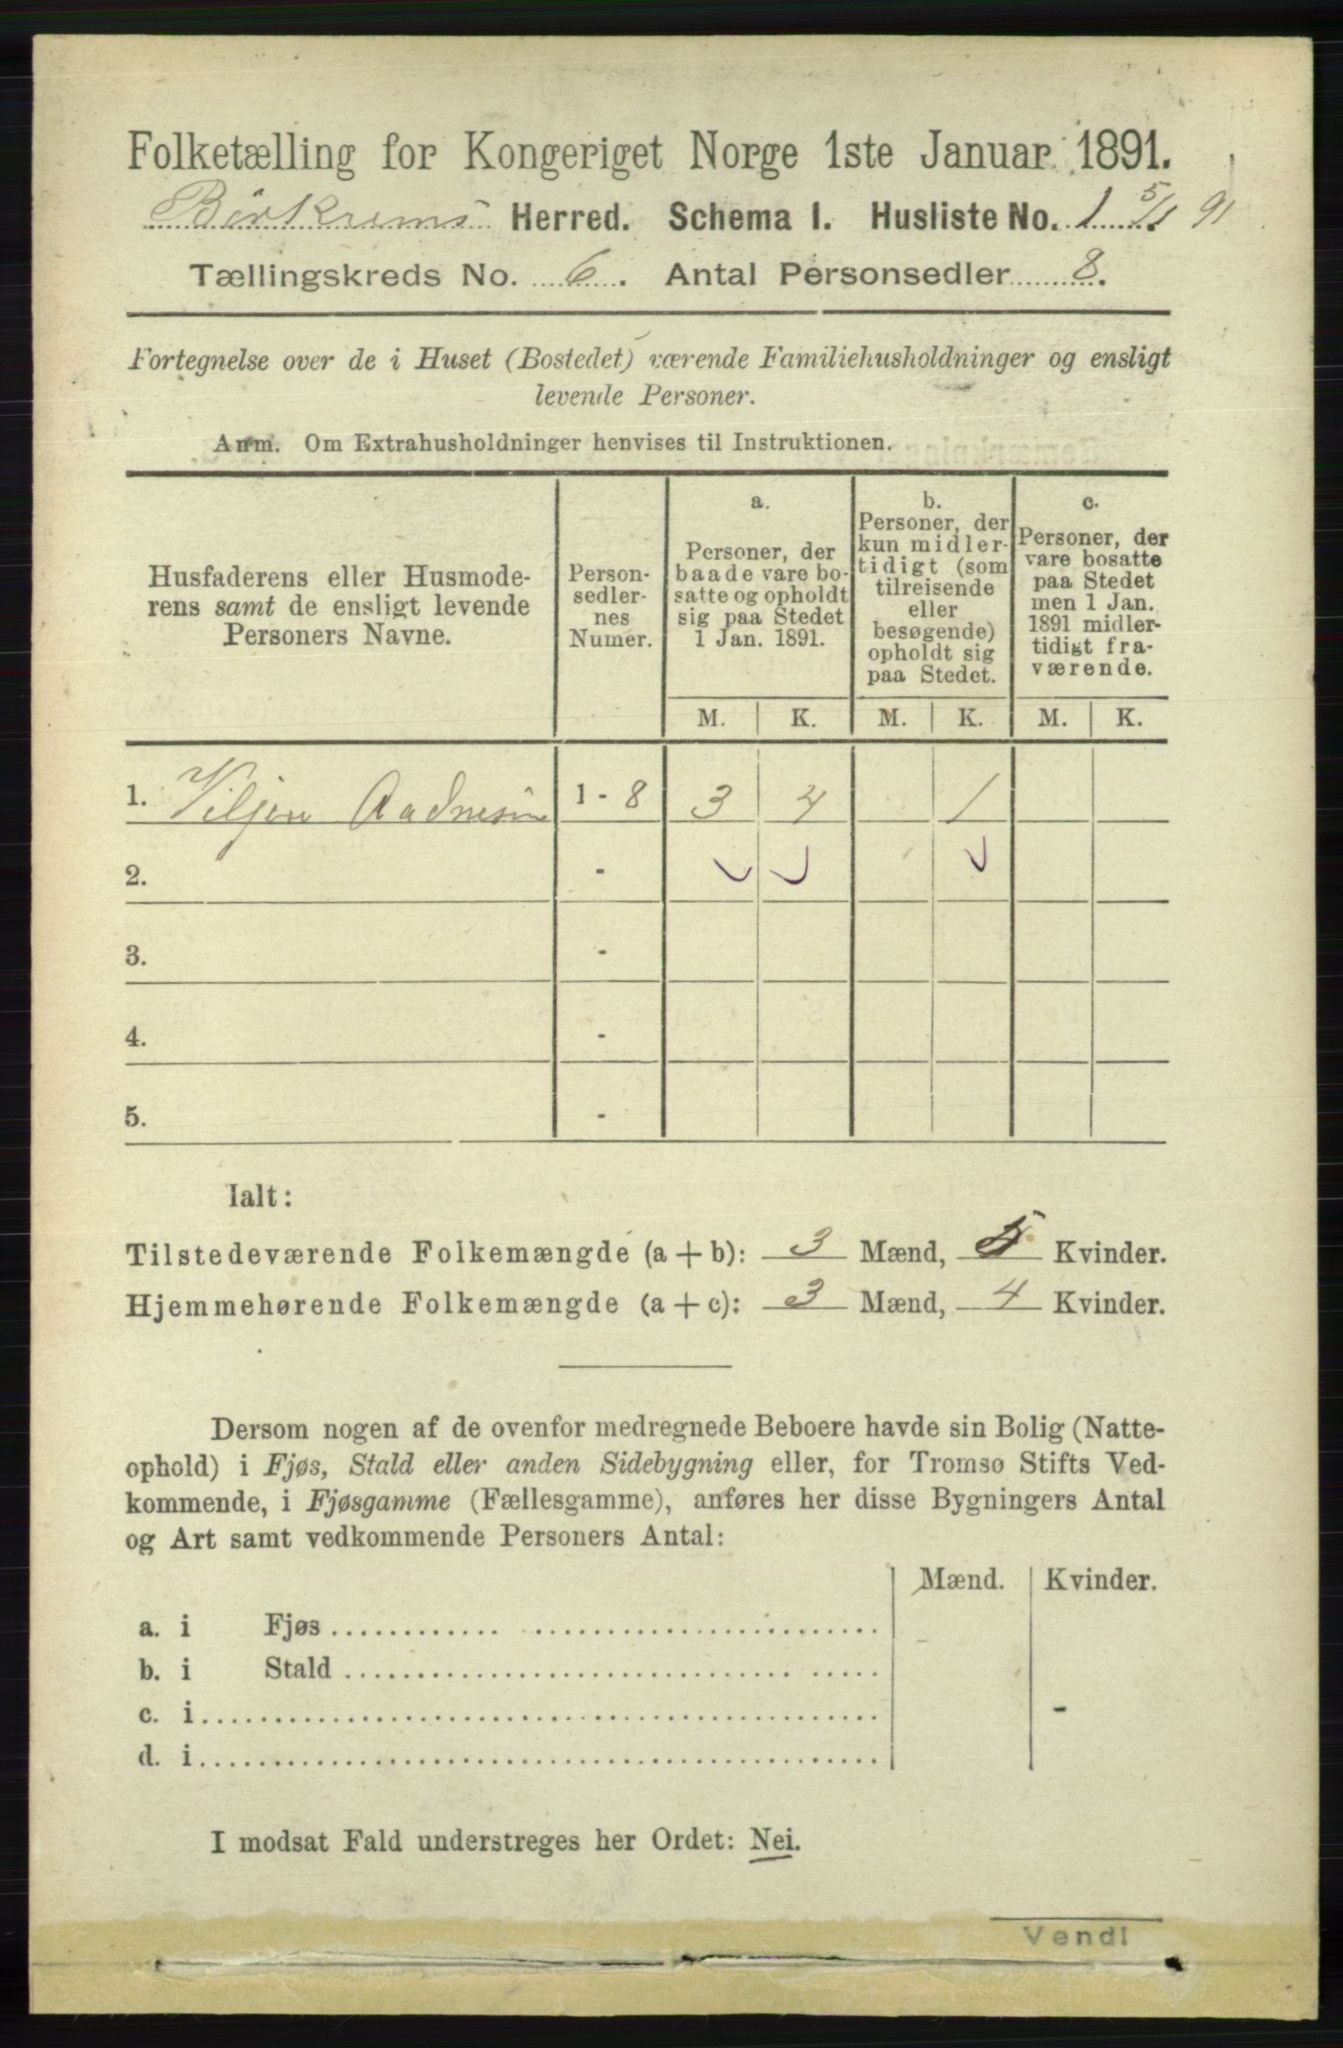 Folketælling for Kongeriget Norge 1ste Januar 1891.
Birkrems Herred. Schema I. Husliste No. 1 5/1 91
Tællingskreds No. 6. Antal Personsedler 8.
Fortegnelse over de i Huset (Bostedet) værende Familiehusholdninger og ensligt
levende Personer.
Anm. Om Extrahusholdninger henvises til Instruktionen.
Husfaderens eller Husmode-
rens samt de ensligt levende
Personers Navne.
Person-
sedler-
nes
Numer.
a.
Personer, der
baade vare bo-
satte og opholdt
sig paa Stedet
1 Jan. 1891.
b.
Personer, der
kun midler-
tidigt (som
tilreisende
eller
besøgende)
opholdt sig
paa Stedet.
c.
Personer, der
vare bosatte
paa Stedet
men 1 Jan.
1891 midler-
tidigt fra-
værende.
M. K. M. K. M. K.
1. Viljen Aadnesen 1 - 8 3 4 1
2. -
3. -
4. -
5. -
Ialt:
Tilstedeværende Folkemængde (a + b): 3 Mænd, 5 Kvinder.
Hjemmehørende Folkemængde (a + c): 3 Mænd, 4 Kvinder.
Dersom nogen af de ovenfor medregnede Beboere havde sin Bolig (Natte-
ophold) i Fjøs, Stald eller anden Sidebygning eller, for Tromsø Stifts Ved-
kommende, i Fjøsgamme (Fællesgamme), anføres her disse Bygningers Antal
og Art samt vedkommende Personers Antal:
Mænd. Kvinder.
a. i Fjøs
b. i Stald
c. i -
d. i
I modsat Fald understreges her Ordet: Nei.
Vend!